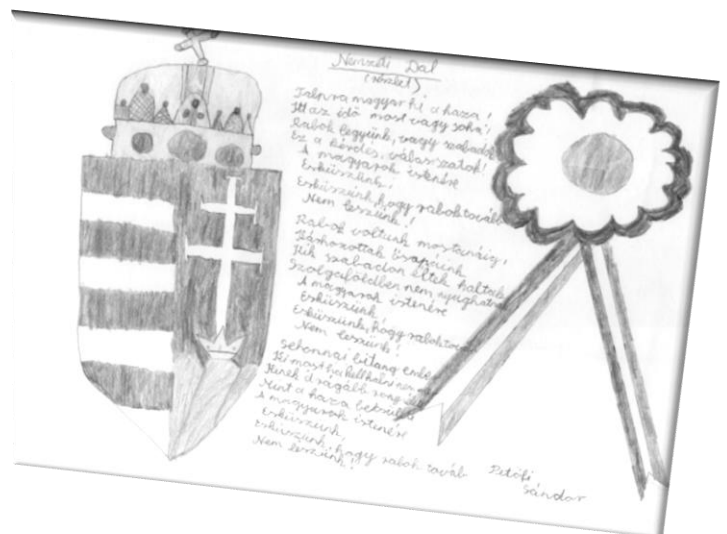 Nemzeti Dal
(részlet)
Talpra magyar hí a haza!
Itt az idő most vagy soha!
Rabok legyünk, vagy szabadok
Ez a kérdés, válasszatok!
A magyarok istenére
Esküszünk!
Esküszünk, hogy rabok tovább
Nem leszünk!
Rabok voltunk mostanáig,
Kárhozottak ősapáink
Kik szabadon éltek haltak
Szolgaföldben nem nyughatnak
A magyarok istenére
Esküszünk
Esküszünk, hogy rabok
Nem leszünk!
Sehonnai bitang ember
Ki most ha kell halni nem
Kinek drágább rongy
Mint a haza becsülete
A magyarok istenére
Esküszünk,
esküszünk, hogy rabok továb
Nem leszünk!
Petőfi
Sándor